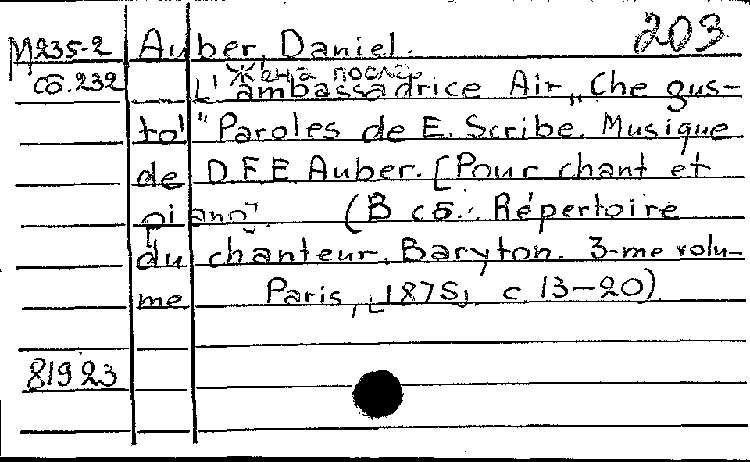 203
М235-2 Auber, Daniel.
Жена послер
сб.232 L'ambassadrice Air „Che gus-
to!" Paroles de E. Scribe. Musique
de D.F.E Auber. [Pour chant et
piano]. (В сб.: Répertoire
du chanteur. Baryton. 3-me volu-
me Paris, [187S], с 13-20).
81923